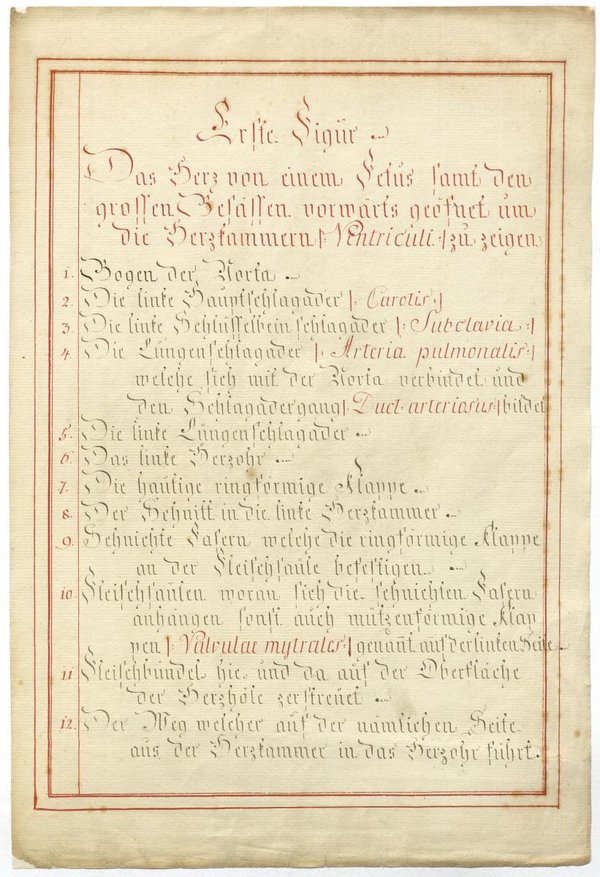 Erste Figur
Das Herz von einem Fetus samt den
grossen Gefässen vorwärts geöfnet um
die Herzkammern |: Ventriculi :| zu zeigen
1. Bogen der Aorta
2. Die linke Hauptschlagader |: Carotis :|
3. Die linke Schlüsselbeinschlagader |: Subclavia :|
4. Die Lungenschlagader |: Arteria pulmonalis :|
welche sich mit der Aorta verbindet und
den Schlagadergang |: Duct arteriosus :| bildet
5. Die linke Lungenschlagader
6. Das linke Herzohr
7. Die häutige ringförmige Klappe
8. Der Schnitt in die linke Herzkammer
9. Sehnichte Fasern welche die ringförmige Klappe
an der Fleischsäule befestigen.
10. Fleischsäulen woran sich die sehnichten Fasern
anhängen sonst auch mützenförmige Klap
pen |: Valvulae mytrales :| genañt auf der linken Seite
11. Fleischbündel hie und da auf der Oberfläche
der Herzhöle zerstreuet
12. Der Weg welcher auf der nämlichen Seite
aus der Herzkammer in das Herzohr führt.